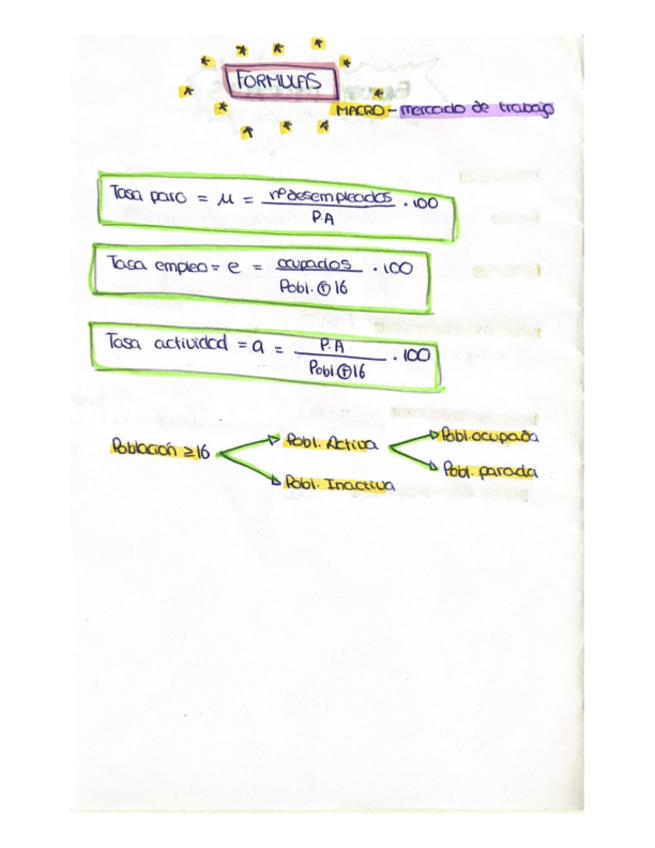 FORMULAS
MACRO - mercado de trabajo
Tasa paro = μ = nº desempleados / P.A · 100
Tasa empleo = e = ocupados / Pobl. ⊕ 16 · 100
Tasa actividad = a = P.A / Pobl ⊕ 16 · 100
Población ≥ 16
Pobl. Activa
Pobl. Inactiva
Pobl. ocupada
Pobl. parada